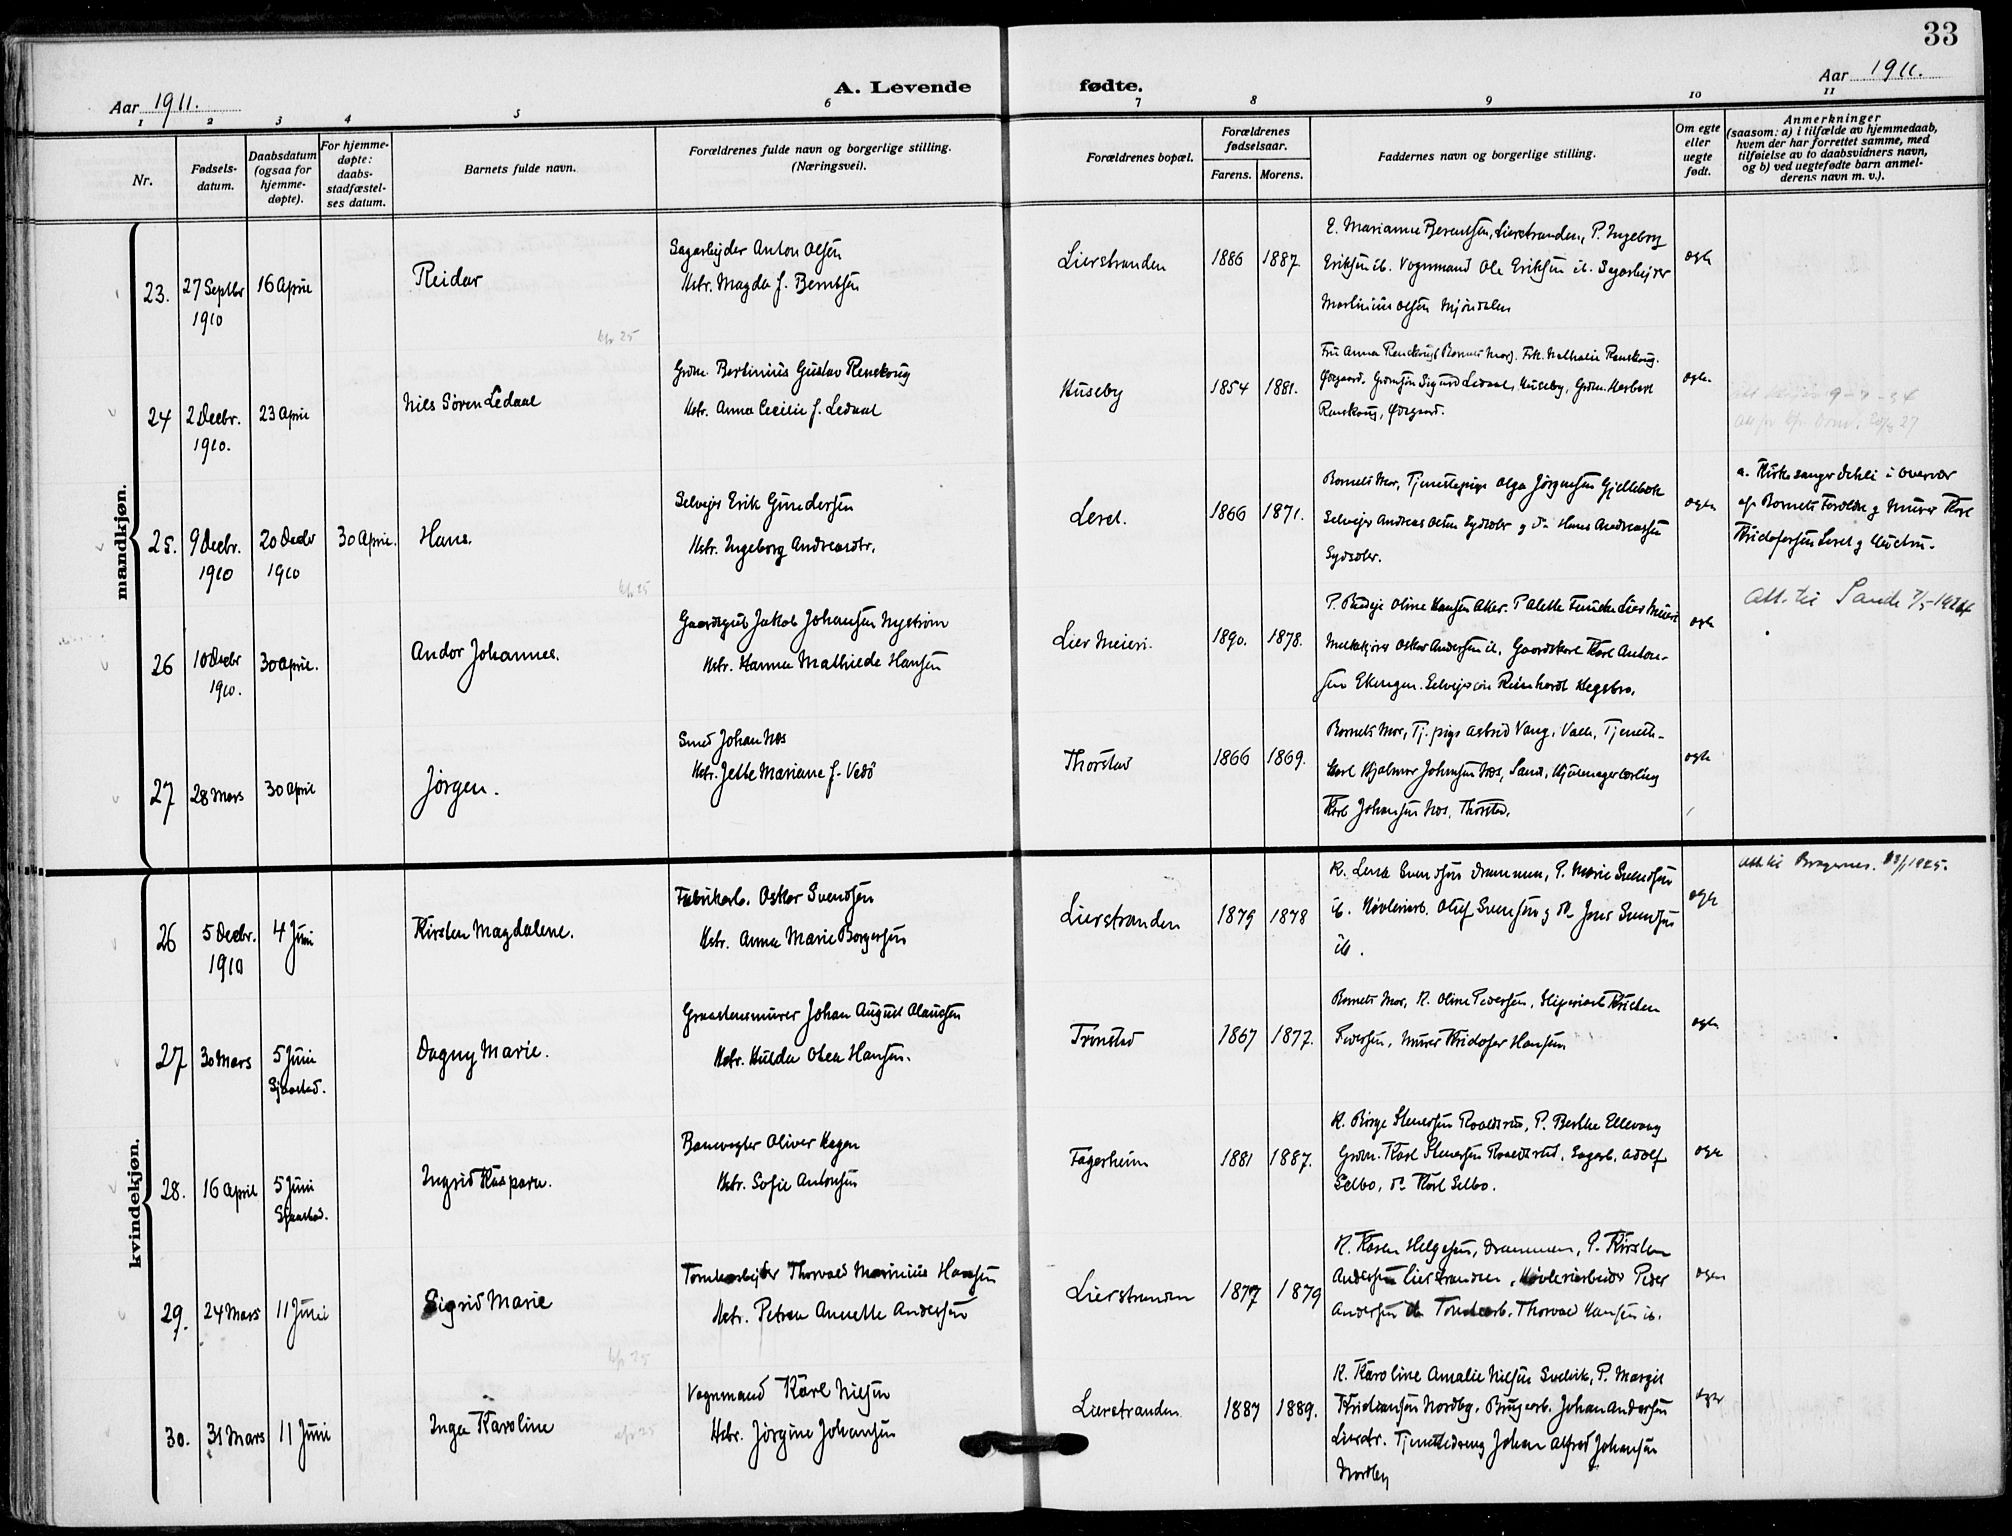 33
Aar 1911.
A. Levende fødte.
Aar 1911.
1 2 3 4 5 6 7 8 9 10 11
Nr.
Fødsels-
datum.
Daabsdatum
(ogsaa for
hjemme-
døpte).
For hjemme-
døpte:
daabs-
stadfæstel-
ses datum.
Barnets fulde navn.
Forældrenes fulde navn og borgerlige stilling.
(Næringsvei).
Forældrenes bopæl.
Forældrenes
fødselsaar.
Farens. Morens.
Faddernes navn og borgerlige stilling.
Om egte
eller
uegte
født.
Anmerkninger
(saasom: a) i tilfælde av hjemmedaab,
hvem der har forrettet samme, med
tilføielse av to daabsvidners navn,
og b) ved uegtefødte barn anmel-
derens navn m. v.).
mandkjøn.
23. 27 Septbr 1910
16 April
Reidar
Sagarbejder Anton Olsen
Hstr. Magda f. Berntsen
Lierstranden
1886 1887
E. Marianne Berentsen, Lierstranden, P. Ingeborg
Eriksen ib. Vognmand Ole Eriksen ib. Sagarbejder
Martinius Olsen Mjøndalen
egte
24 2 Decbr. 1910.
23 April
Nils Søren Ledaal
Grdm. Bertinius Gustav Renskoug
Hstr. Anna Cecilie f. Ledaal
Huseby
1854 1881.
Fru Anna Renskoug (Barnets Mor). Frk. Nathalie Renskoug.
Øvegaard. Sigurd Ledaal, Huseby, Grdm. Herbert
Renskoug, Øvegaard.
egte.
25. 9 Decbr. 1910
20 Decbr 1910
30 April.
Hans.
Selvejer Erik Gundersen
Hstr. Ingeborg Andreasdtr.
Leret.
1866 1871.
Barnets Mor, Tjenestepige Olga Jørgensen Gjellebæk
Selvejer Andreas Olsen Sydsdr. g do Hans Andreassen
Sydsdr.
egte
a. Kirkesanger Dehli i Overvær
af Barnets Forældre g Murer Karl
Kristofersen Leret g Hustru.
26 10 Decbr 1910.
30 April.
Andor Johannes.
Gaardsgut Jakob Johansen Nystrøm
Hstr. Hanna Mathilde Hansen
Lier Meieri.
1890. 1878.
P. Budeje Oline Hansen Aker. P Alette Lier Meieri
Melkekjører Oskar Andersen ib. Gaardskarl Karl Anton-
sen Ekengen. Selvejersøn Reinhardt Hegsbro.
egte
Att. til Sande 7/5-1924
27 28 Mars
30 April
Jørgen.
Smed Johan Næs
Hstr. Jette Mariane f. Vedø
Thorstad
1866 1869.
Barnets Mor, Tj. pige Astrid Vang, Valle, Tjeneste-
karl Hjalmar Johansen Næs, Sand, Hjulmagerlærling
Karl Johansen Næs, Thorstad.
egte
kvindekjøn.
26 5 Decbr. 1910
4 Juni
Kirsten Magdalene.
Fabrikarb. Oskar Svendsen
Hstr. Anna Marie Borgersen
Lierstranden
1879 1878
K. Lena Svendsen Drammen, P. Marie Svendsen
ib. Høvleriarb. Olaf Svensen g do Jens Svendsen
ib.
egte
Att. til Bragernes. 1925.
27 30 Mars
5 Juni
Sjaastad.
Dagny Marie.
Graastensmurer Johan August Olaussen
Hstr. Hulda Olea Hansen.
Tronstad
1867 1877.
Barnets Mor, K. Oline Pedersen, Sliperiarb Kristen
Pedersen, Murer Kristofer Hansen
egte
28. 16 April
5 Juni
Sjaastad.
Ingrid Kaspara.
Banevogter Oliver Hagen
Hstr. Sofie Antonsen
Fagerheim
1881 1887.
K. Børge Stenersen Roaldsrud, P. Berthe Ellevang
Grdm. Karl Stenersen Roaldsrud, Sagarb. Adolf
Selbo, do Karl Selbo.
egte
29. 24 Mars
11 Juni
Sigrid Marie
Tomtearbejder Thorvald Marinius Hansen
Hstr. Petra Annette Andersen
Lierstranden
1877 1879
K. Karen Helgesen, Drammen, P. Kirsten
Andersen Lierstranden, Høvleriarbeider Peder
Andersen ib Tomtearb. Thorvald Hansen ib.
egte
30. 31 Mars
11 Juni
Inga Karoline
Vognmand Karl Nilsen
Hstr. Jørgine Johansen
Lierstranden
1887 1889.
K. Karoline Amalie Nilsen Svelvik, P. Margit
Kristiansen Nordby, Brugsarb. Johan Andersen
Lierstr. Tjenestedreng Johan Alfred Johansen
Nordby
egte